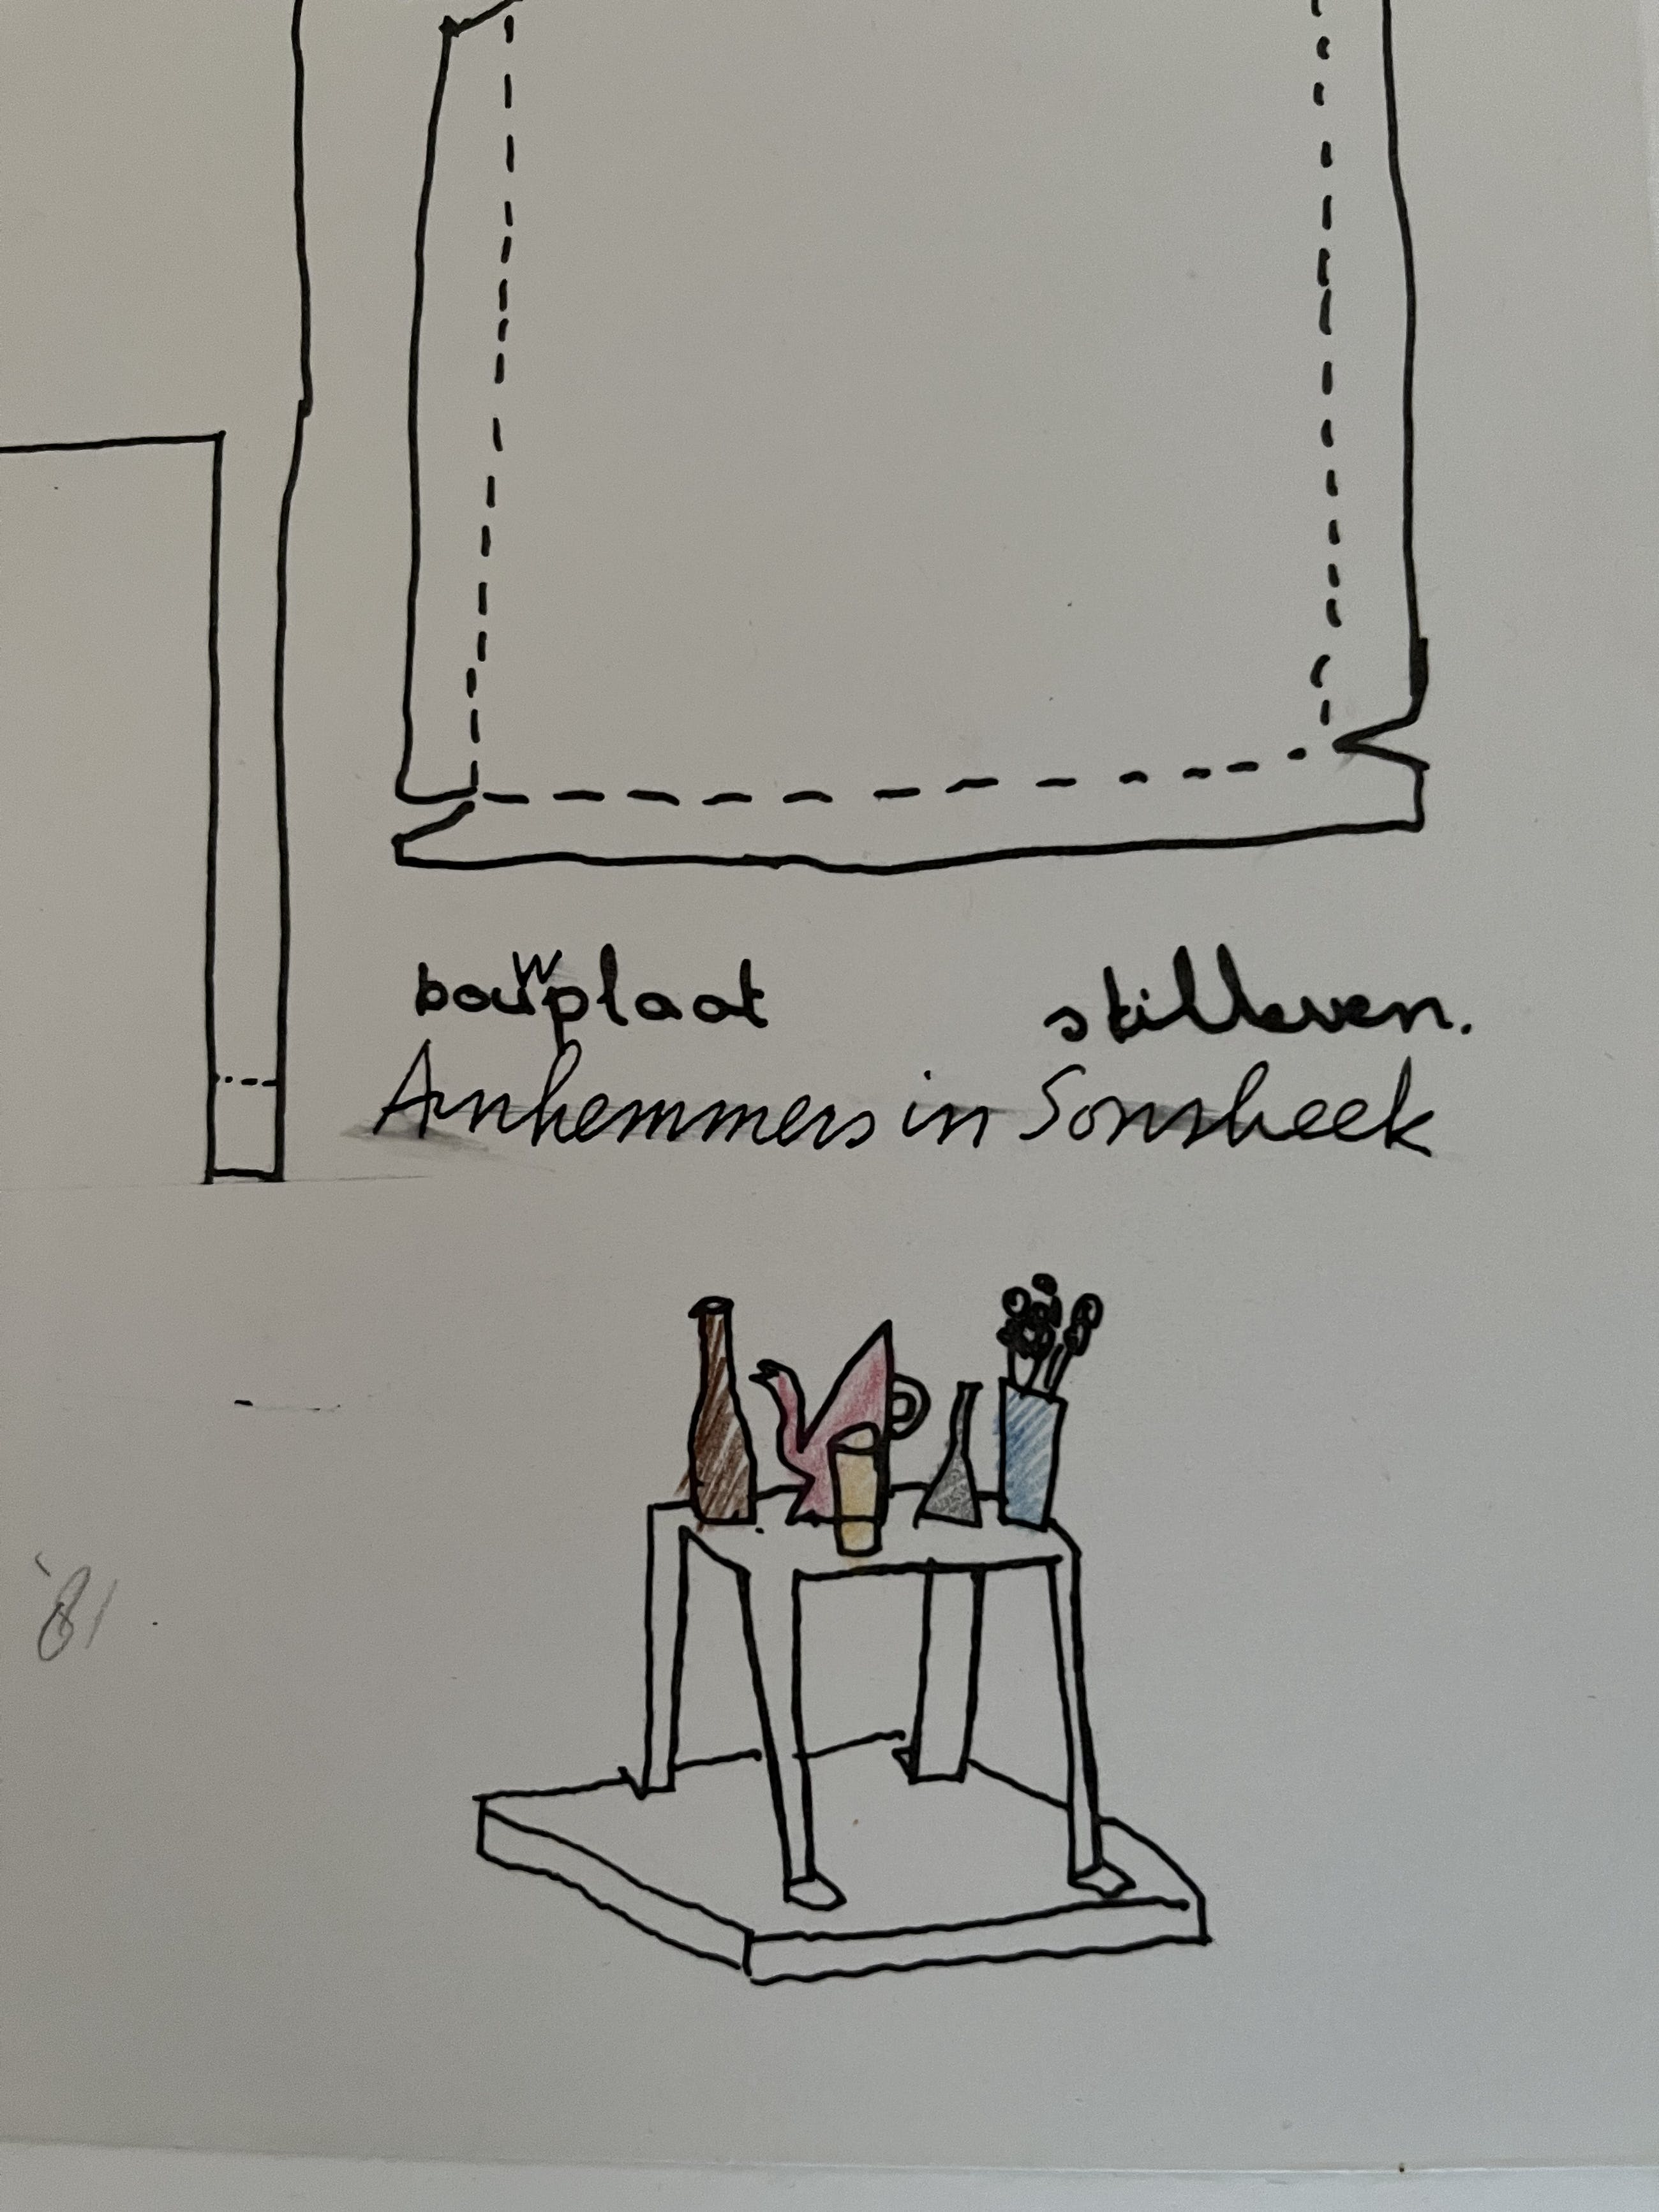 bouwplaat stilleven.
Arnhemmers in Sonsbeek
'81